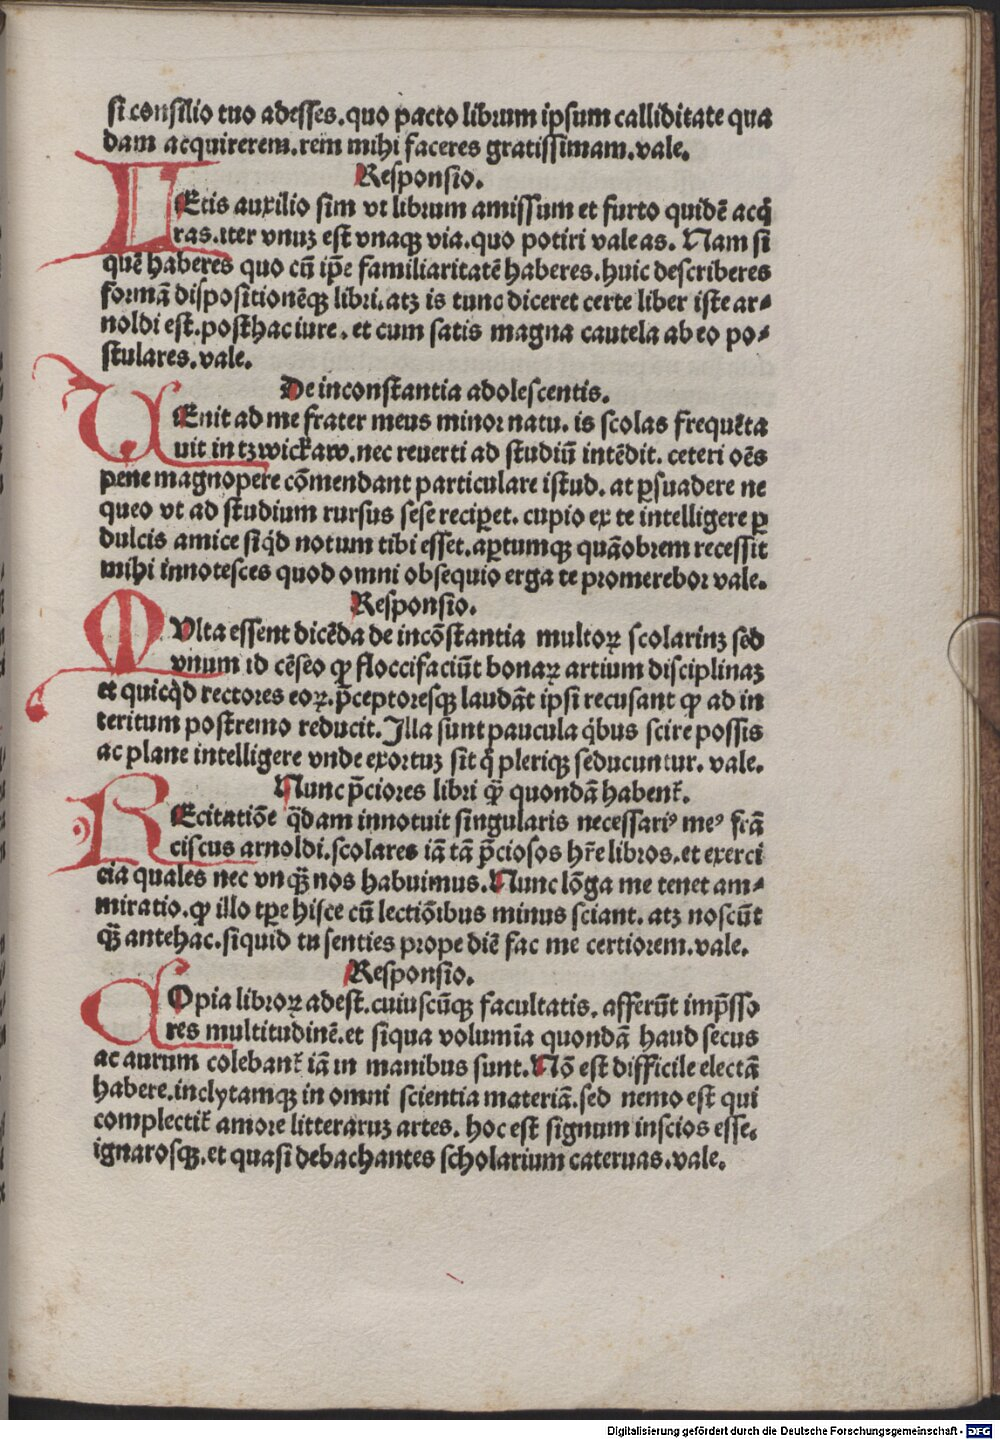 si consilio tuo adesses. quo pacto librum ipsum calliditate qua
dam acquirerem. rem mihi faceres gratissimam. vale.
Responsio.
LEtis auxilio sim vt librum amissum et furto quidē acq̄
ras. iter vnuʒ est vnaqꝫ via. quo potiri valeas. Nam si
quē haberes quo cū ip̄e familiaritatē haberes. huic describeres
formā dispositionēqꝫ libri. atꝫ is tunc diceret certe liber iste ar⸗
noldi est. posthac iure. et cum satis magna cautela ab eo po⸗
stulares. vale.
De inconstantia adolescentis.
VEnit ad me frater meus minor natu. is scolas frequēta
uit in tzwickaw. nec reuerti ad studiū intēdit. ceteri oēs
pene magnopere cōmendant particulare istud. at ꝑsuadere ne
queo vt ad studium rursus sese reciꝑet. cupio ex te intelligere ꝑ
dulcis amice siq̇d notum tibi esset. aꝑtumqꝫ quāobrem recessit
mihi innotesces quod omni obsequio erga te promerebor vale.
Responsio.
MVlta essent dicēda de incōstantia multoꝝ scolarinʒ sed
vnum id cēseo ꝙ floccifaciūt bonaꝝ artium disciplinaʒ
et quicq̇d rectores eoꝝ. p̄ceptoresqꝫ laudāt ipsi recusant ꝙ ad in
teritum postremo reducit. Illa sunt paucula q̇bus scire possis
ac plane intelligere vnde exortuʒ sit q̇ pleriqꝫ seducuntur. vale.
Nunc p̄ciores libri ꝙ̄ quondā habent᷑.
REcitatiōe q̄dam innotuit singularis necessariꝰ meꝰ frā
ciscus arnoldi. scolares iā tā p̄ciosos hr̄e libros. et exerci
cia quales nec vnꝙ̄ nos habuimus. Nunc lōga me tenet am⸗
miratio. ꝙ illo tꝑe hisce cū lectiōibus minus sciant. atꝫ noscūt
ꝙ̄ antehac. siquid tu senties prope diē fac me certiorem. vale.
Responsio.
COpia libroꝝ adest. cuiuscūqꝫ facultatis. afferūt imp̄sso
res multitudinē. et siqua volumīa quondā haud secus
ac aurum colebant᷑ iā in manibus sunt. Nō est difficile electā
habere. inclytamqꝫ in omni scientia materiā. sed nemo est qui
complectit᷑ amore litteraruʒ artes. hoc est signum inscios esse.
ignarosqꝫ. et quasi debachantes scholarium cateruas. vale.
Digitalisierung gefördert durch die Deutsche Forschungsgemeinschaft - DFG